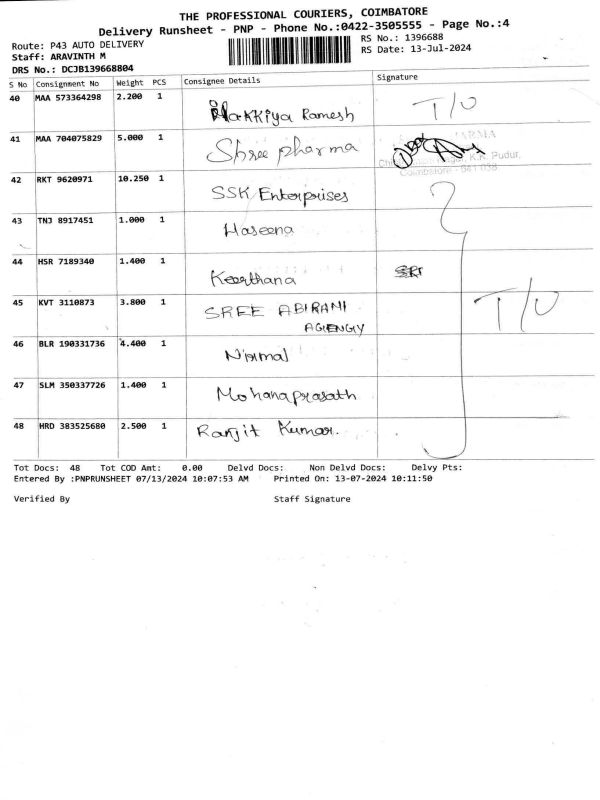 THE PROFESSIONAL COURIERS, COIMBATORE
Delivery Runsheet - PNP - Phone No.:0422-3505555 - Page No.:4
Route: P43 AUTO DELIVERY RS No.: 1396688
Staff: ARAVINTH M RS Date: 13-Jul-2024
DRS No.: DCJB139668804
S No Consignment No Weight PCS Consignee Details Signature
40 MAA 573364298 2.200 1 Ilakkiya Ramesh T/O
41 MAA 704075829 5.000 1 Shree pharma
K.K. Pudur,
Coimbatore - 641 038
42 RKT 9620971 10.250 1 SSK Enterprises
43 TNJ 8917451 1.000 1 Haseena
44 HSR 7189340 1.400 1 Keerthana
45 KVT 3110873 3.800 1 SREE ABIRANI T/O
AGIENGIY
46 BLR 190331736 4.400 1 Nirmal
47 SLM 350337726 1.400 1 Mohanaprasath
48 HRD 383525680 2.500 1 Ranjit Kumar.
Tot Docs: 48 Tot COD Amt: 0.00 Delvd Docs: Non Delvd Docs: Delvy Pts:
Entered By :PNPRUNSHEET 07/13/2024 10:07:53 AM Printed On: 13-07-2024 10:11:50
Verified By Staff Signature